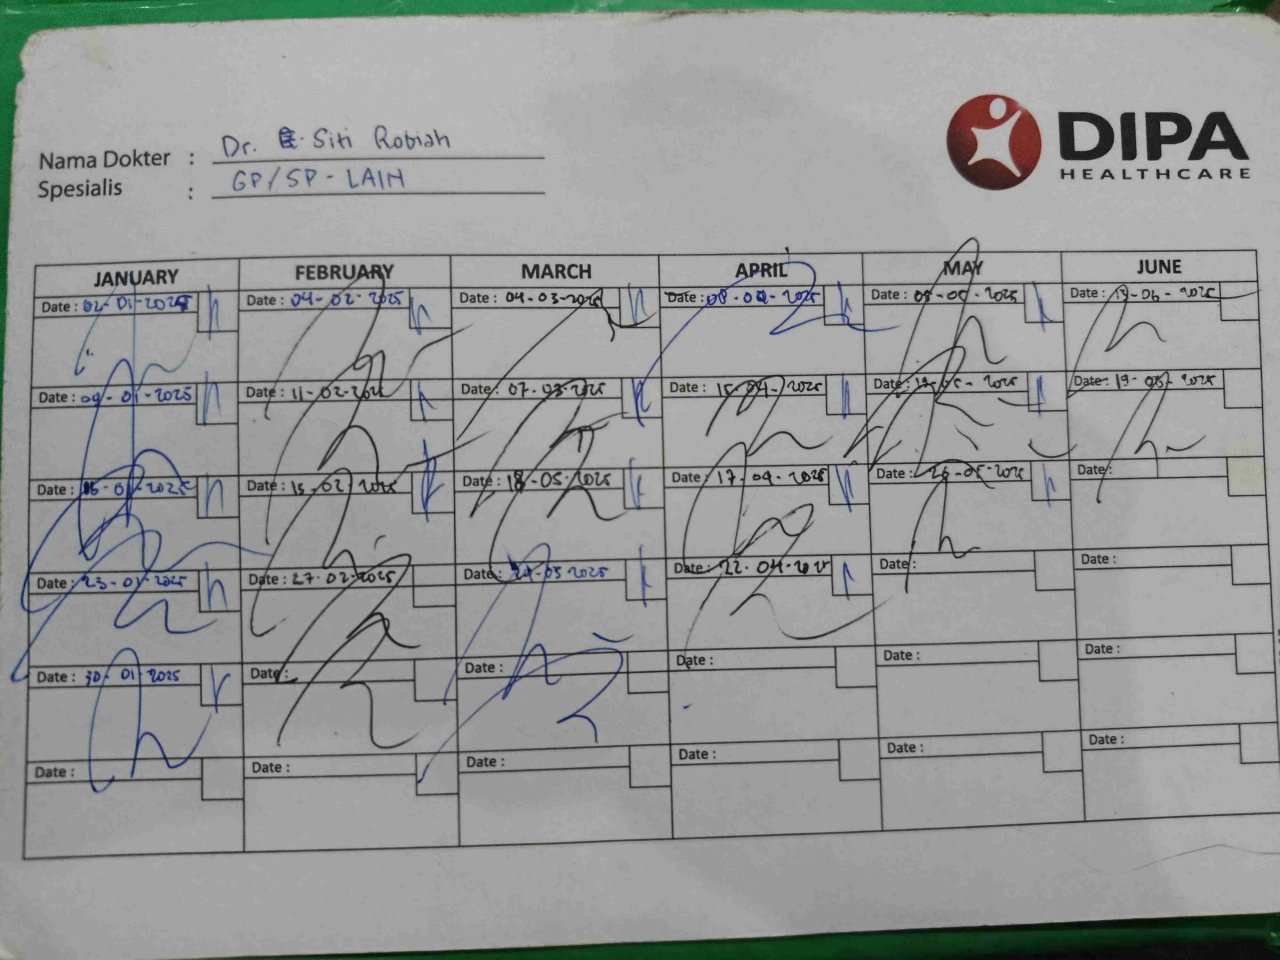 DIPA
HEALTHCARE
Nama Dokter : Dr. Siti Robiah
Spesialis : GP/SP-LAIN
JANUARY FEBRUARY MARCH APRIL MAY JUNE
Date : 02-01-2025 Date : 04-02-2025 Date : 04-03-2025 Date : 08-04-2025 Date : 05-05-2025 Date : 13-06-2025
Date : 09-01-2025 Date : 11-02-2025 Date : 07-03-2025 Date : 15-04-2025 Date : 15-05-2025 Date : 19-06-2025
Date : 16-01-2025 Date : 15-02-2025 Date : 18-03-2025 Date : 17-04-2025 Date : 26-05-2025 Date :
Date : 23-01-2025 Date : 27-02-2025 Date : 24-03-2025 Date : 22-04-2025 Date : Date :
Date : 30-01-2025 Date : Date : Date : Date : Date :
Date : Date : Date : Date : Date : Date :